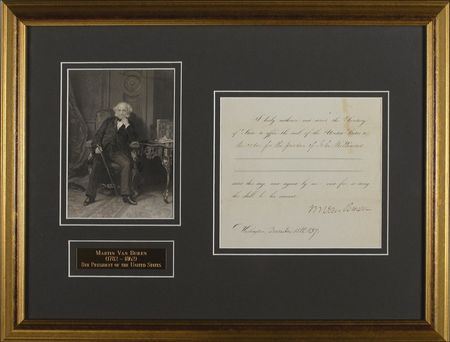 I hereby authorize and direct the Secretary
of State to affix the seal of the United States to
the order for the pardon of John Williams
dated this day, and signed by me and for so doing
this shall be his warrant.
M Van Buren
Washington, December 1837.
MARTIN VAN BUREN
(1782 ~ 1862)
8TH PRESIDENT OF THE UNITED STATES